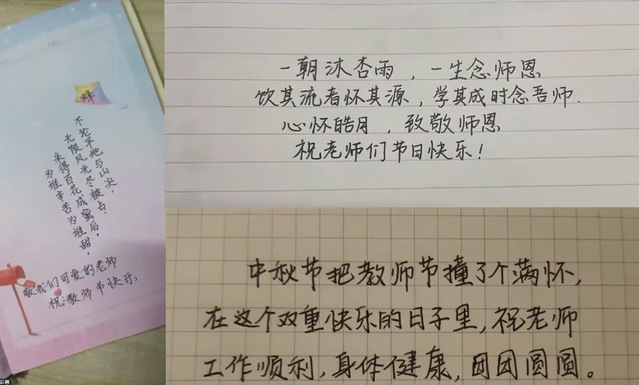 蜂
不论平地与山尖，
无限风光尽被占。
采得百花成蜜后，
为谁辛苦为谁甜。
敬我们可爱的老师
祝:教师节快乐.
一朝沐杏雨，一生念师恩
饮其流者怀其源，学其成时念吾师.
心怀皓月，致敬师恩
祝老师们节日快乐！
中秋节把教师节撞了个满怀，
在这个双重快乐的日子里，祝老师
工作顺利，身体健康，团团圆圆。